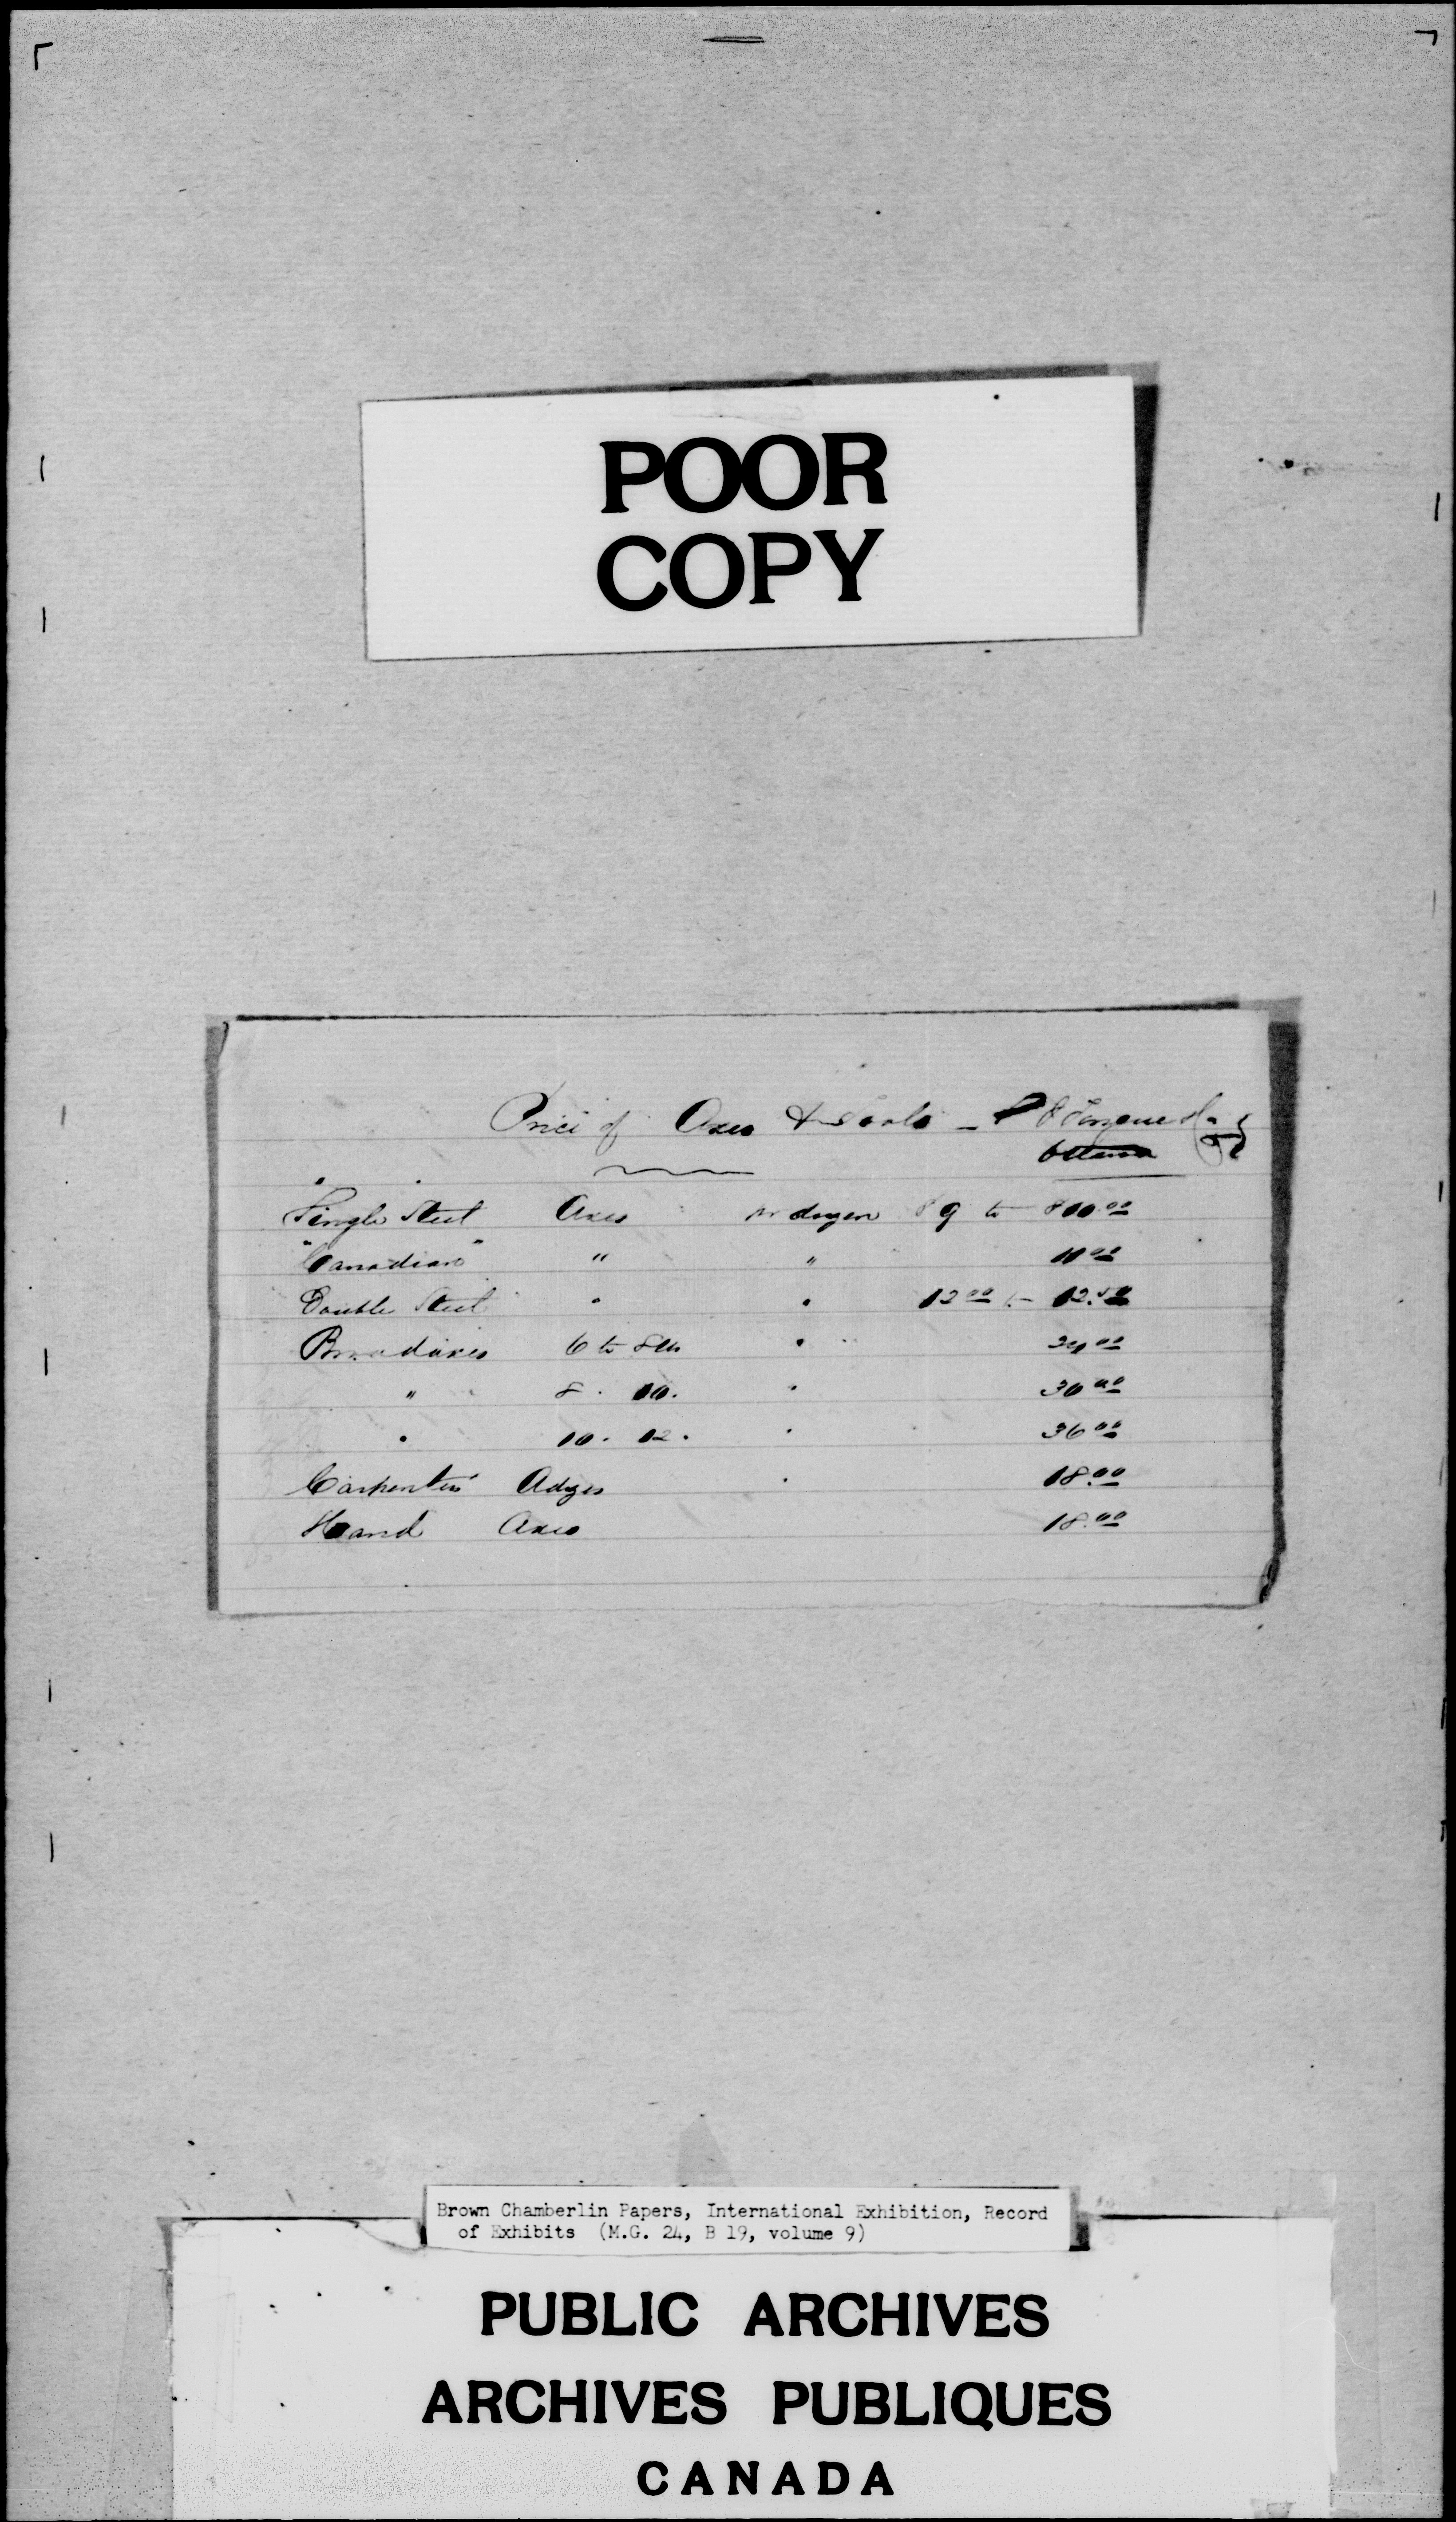 POOR
COPY
Price of Axes & Tools -
Ottawa
Single Steel Axes pr dozen $ 9 to $10.00
"Canadian" " " 11 00
Double Steel " " 12 00 to 12.50
Broadaxes 6 to 8 in " 24 00
" 8 " 10 " " 30 00
" 10 " 12 " " 36 00
Carpenters Adzes " 18.00
Hand Axes 18.00
Brown Chamberlin Papers, International Exhibition, Record
of Exhibits (M.G. 24, B 19, volume 9)
PUBLIC ARCHIVES
ARCHIVES PUBLIQUES
CANADA